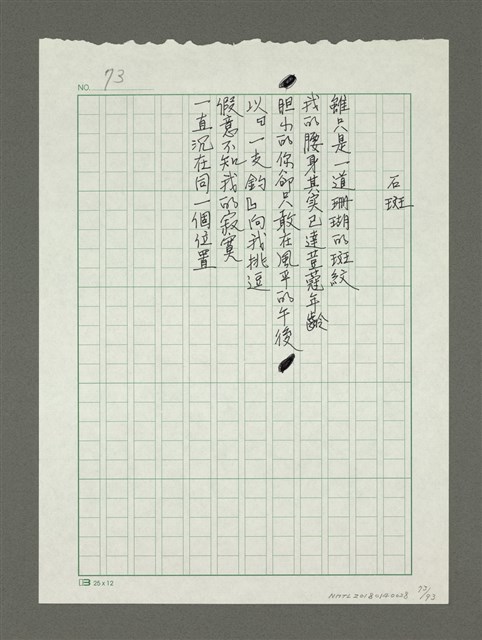 NO. 73
石斑
雖只是一道珊瑚的斑紋
我的腰身其实已達荳蔻年齡
胆小的你卻只敢在風平的午後
以一支釣凸向我挑逗
假意不知我的寂寞
一直沉在同一個位置
25x12
73/93